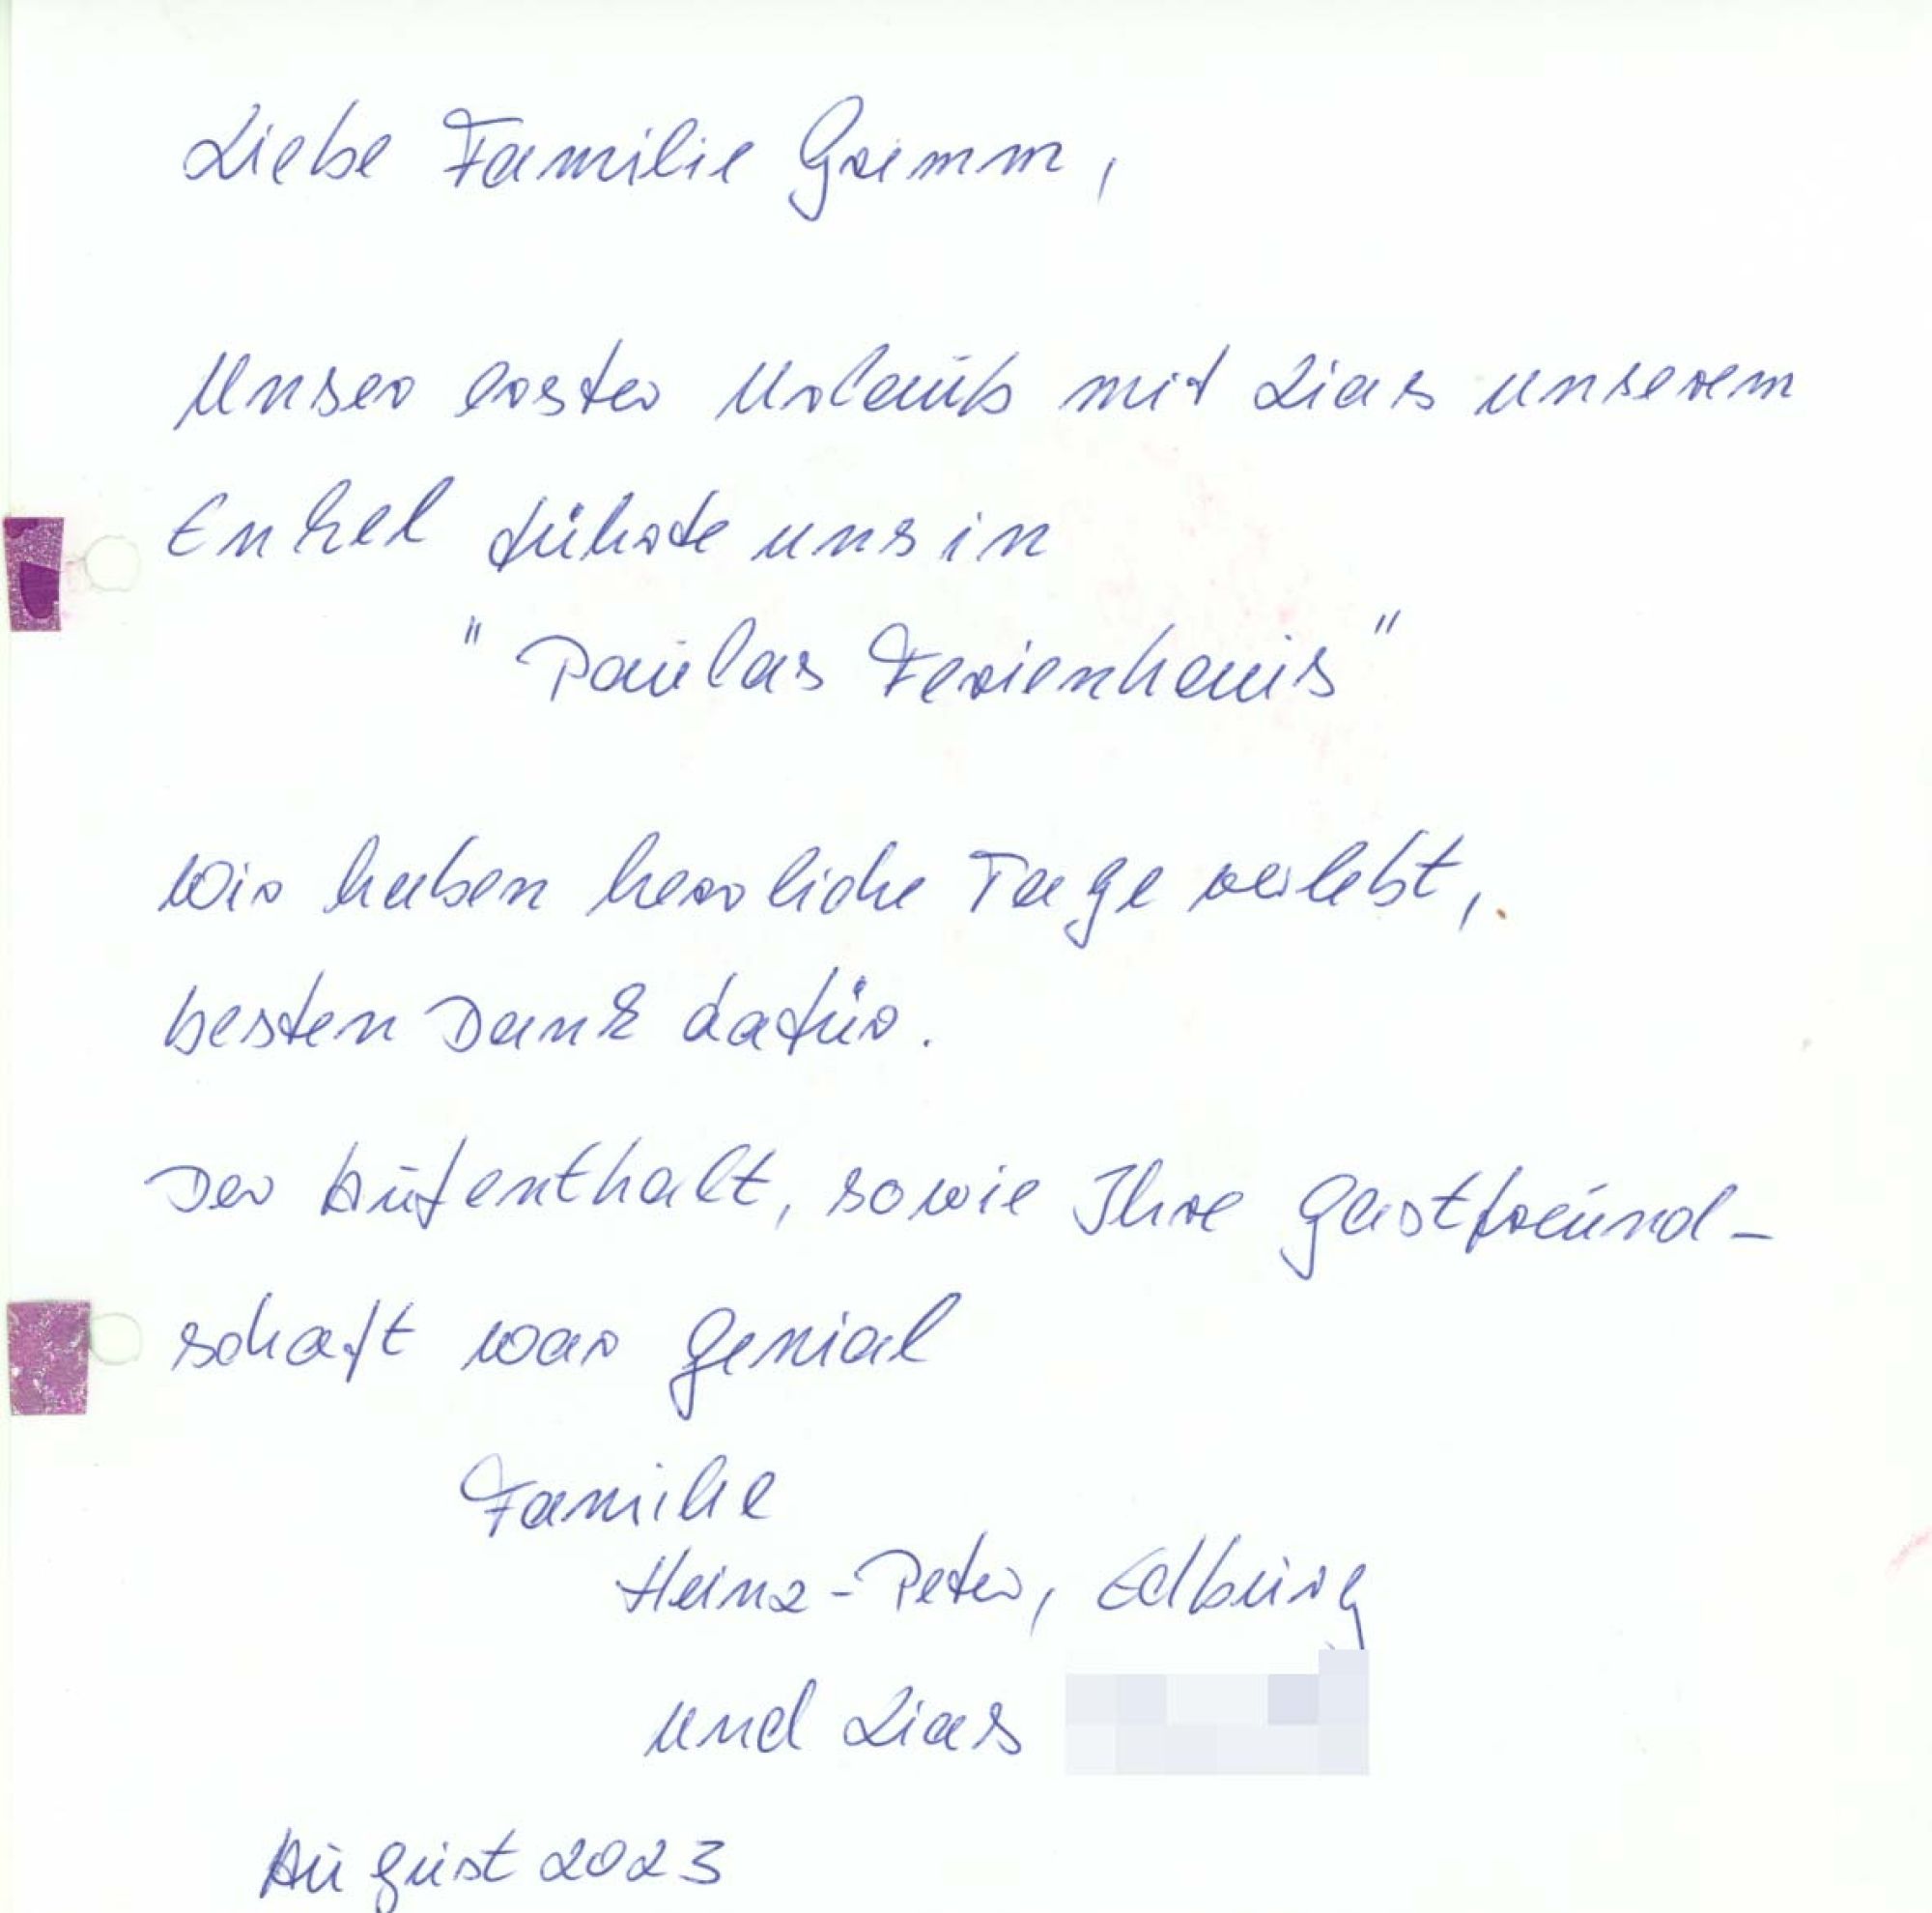 Liebe Familie Grimm,
Unser erster Urlaub mit Lias unserem
Enkel führte uns in
"Paulas Ferienhaus"
Wir haben herrliche Tage verlebt,
besten Dank dafür.
Der Aufenthalt, sowie Ihre Gastfreund-
schaft war genial
Familie
Heinz-Peter, Edburg
und Lias
August 2023